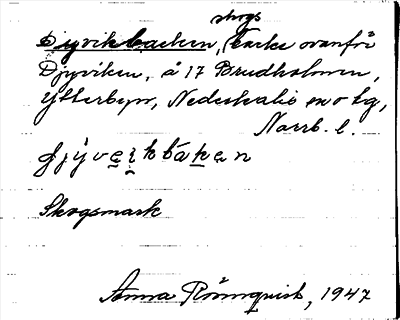 skogs
Djyvikbacken, backe ovanför
Djyviken, å 17 Brudholmen,
Ytterbyn, Nederkalix sn o tg,
Norrb. l.
Skogsmark
Anna Rönnquist, 1947